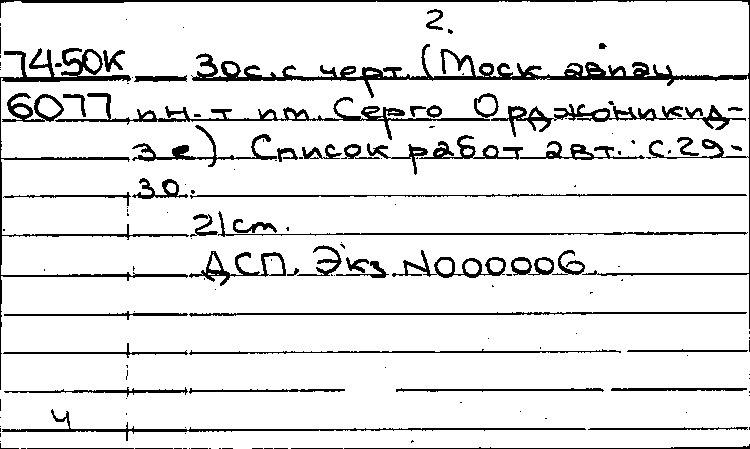 2.
74-50К 30с. с черт. (Моск авиац
6077 ин-т им. Серго Орджоникид-
зе). Список работ авт.: с.29-
30.
21см.
ДСП. Экз. N000006.
ч